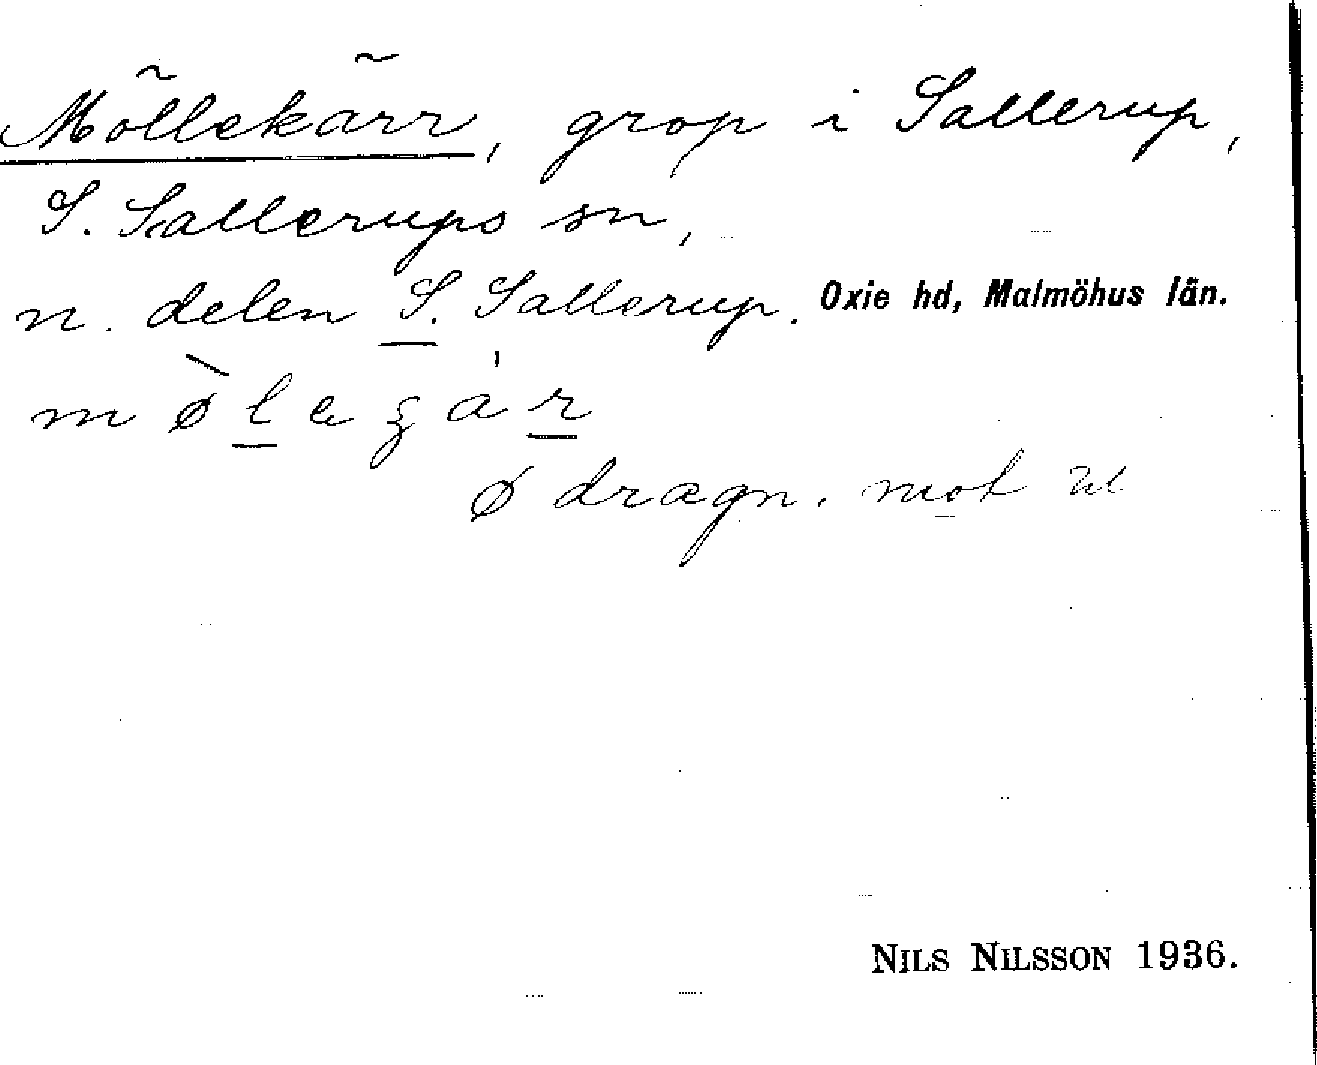 Möllekärr, grop i Sallerup,
S. Sallerups sn,
n. delen S. Sallerup. Oxie hd, Malmöhus län.
ø dragn. mot
NILS NILSSON 1936.